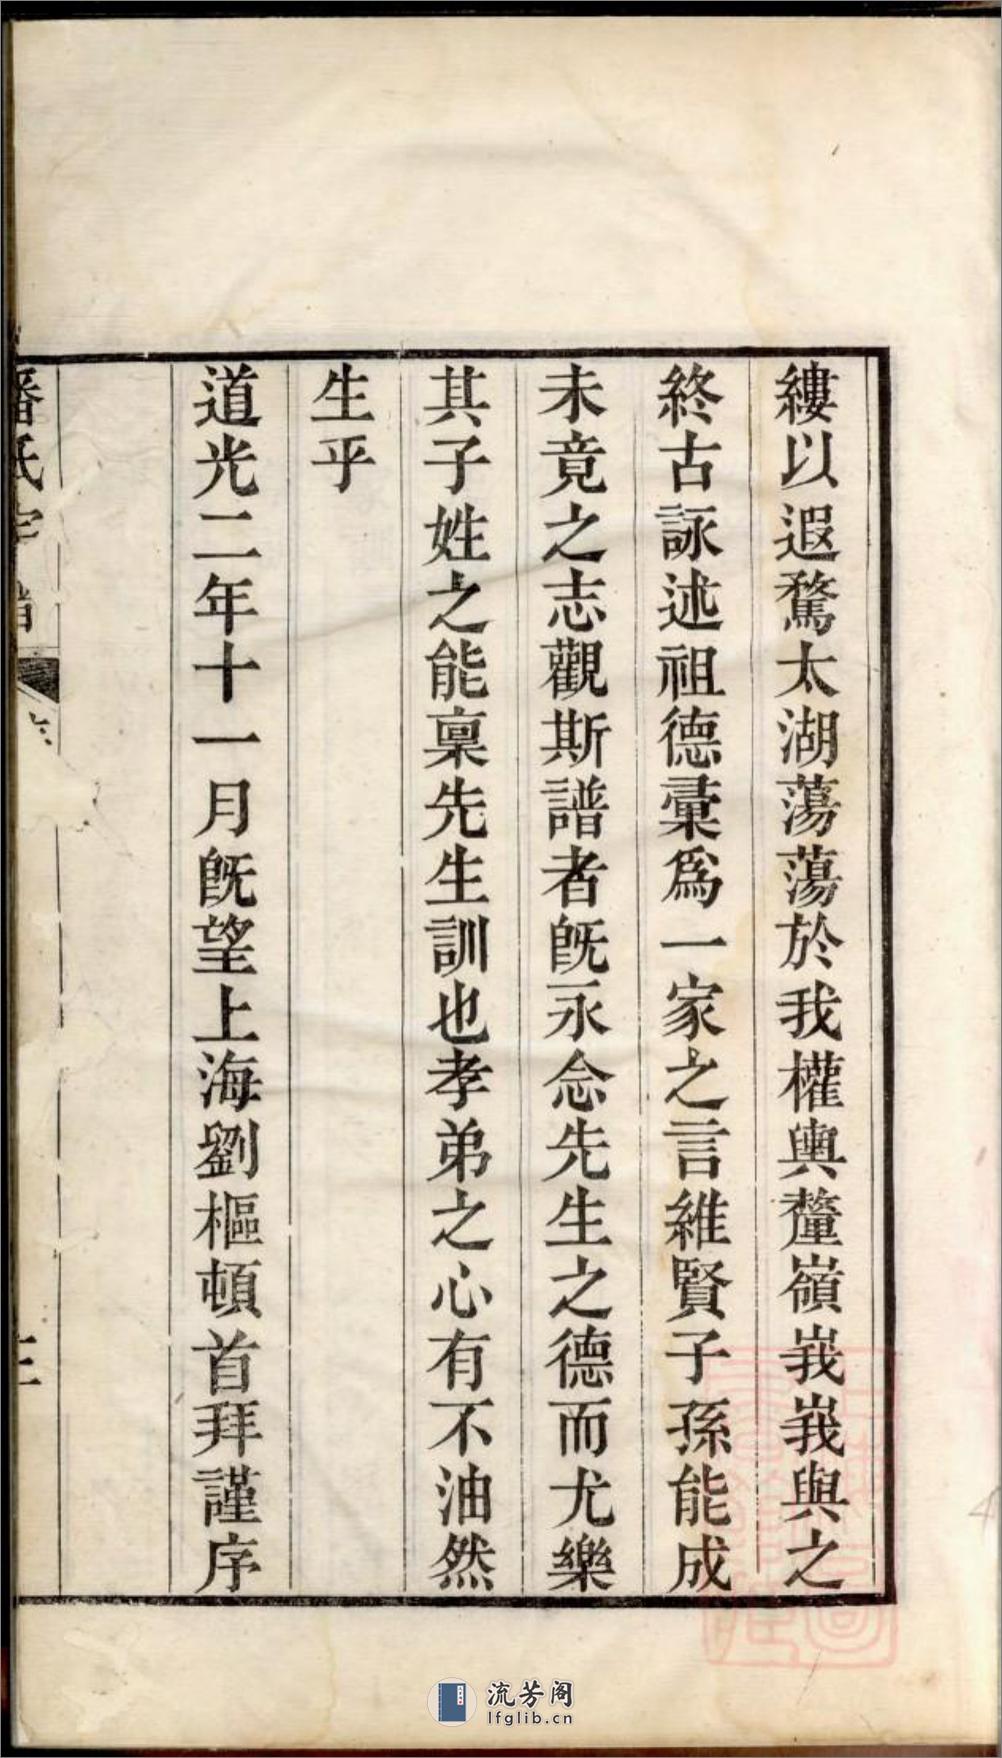 縷以遐騖太湖蕩蕩於我權輿釐嶺峩峩與之
終古詠述祖德彙爲一家之言維賢子孫能成
未竟之志觀斯譜者旣永念先生之德而尤樂
其子姓之能稟先生訓也孝弟之心有不油然
生乎
道光二年十一月旣望上海劉樞頓首拜謹序
潘氏宗譜
三
流芳阁
lfglib.cn